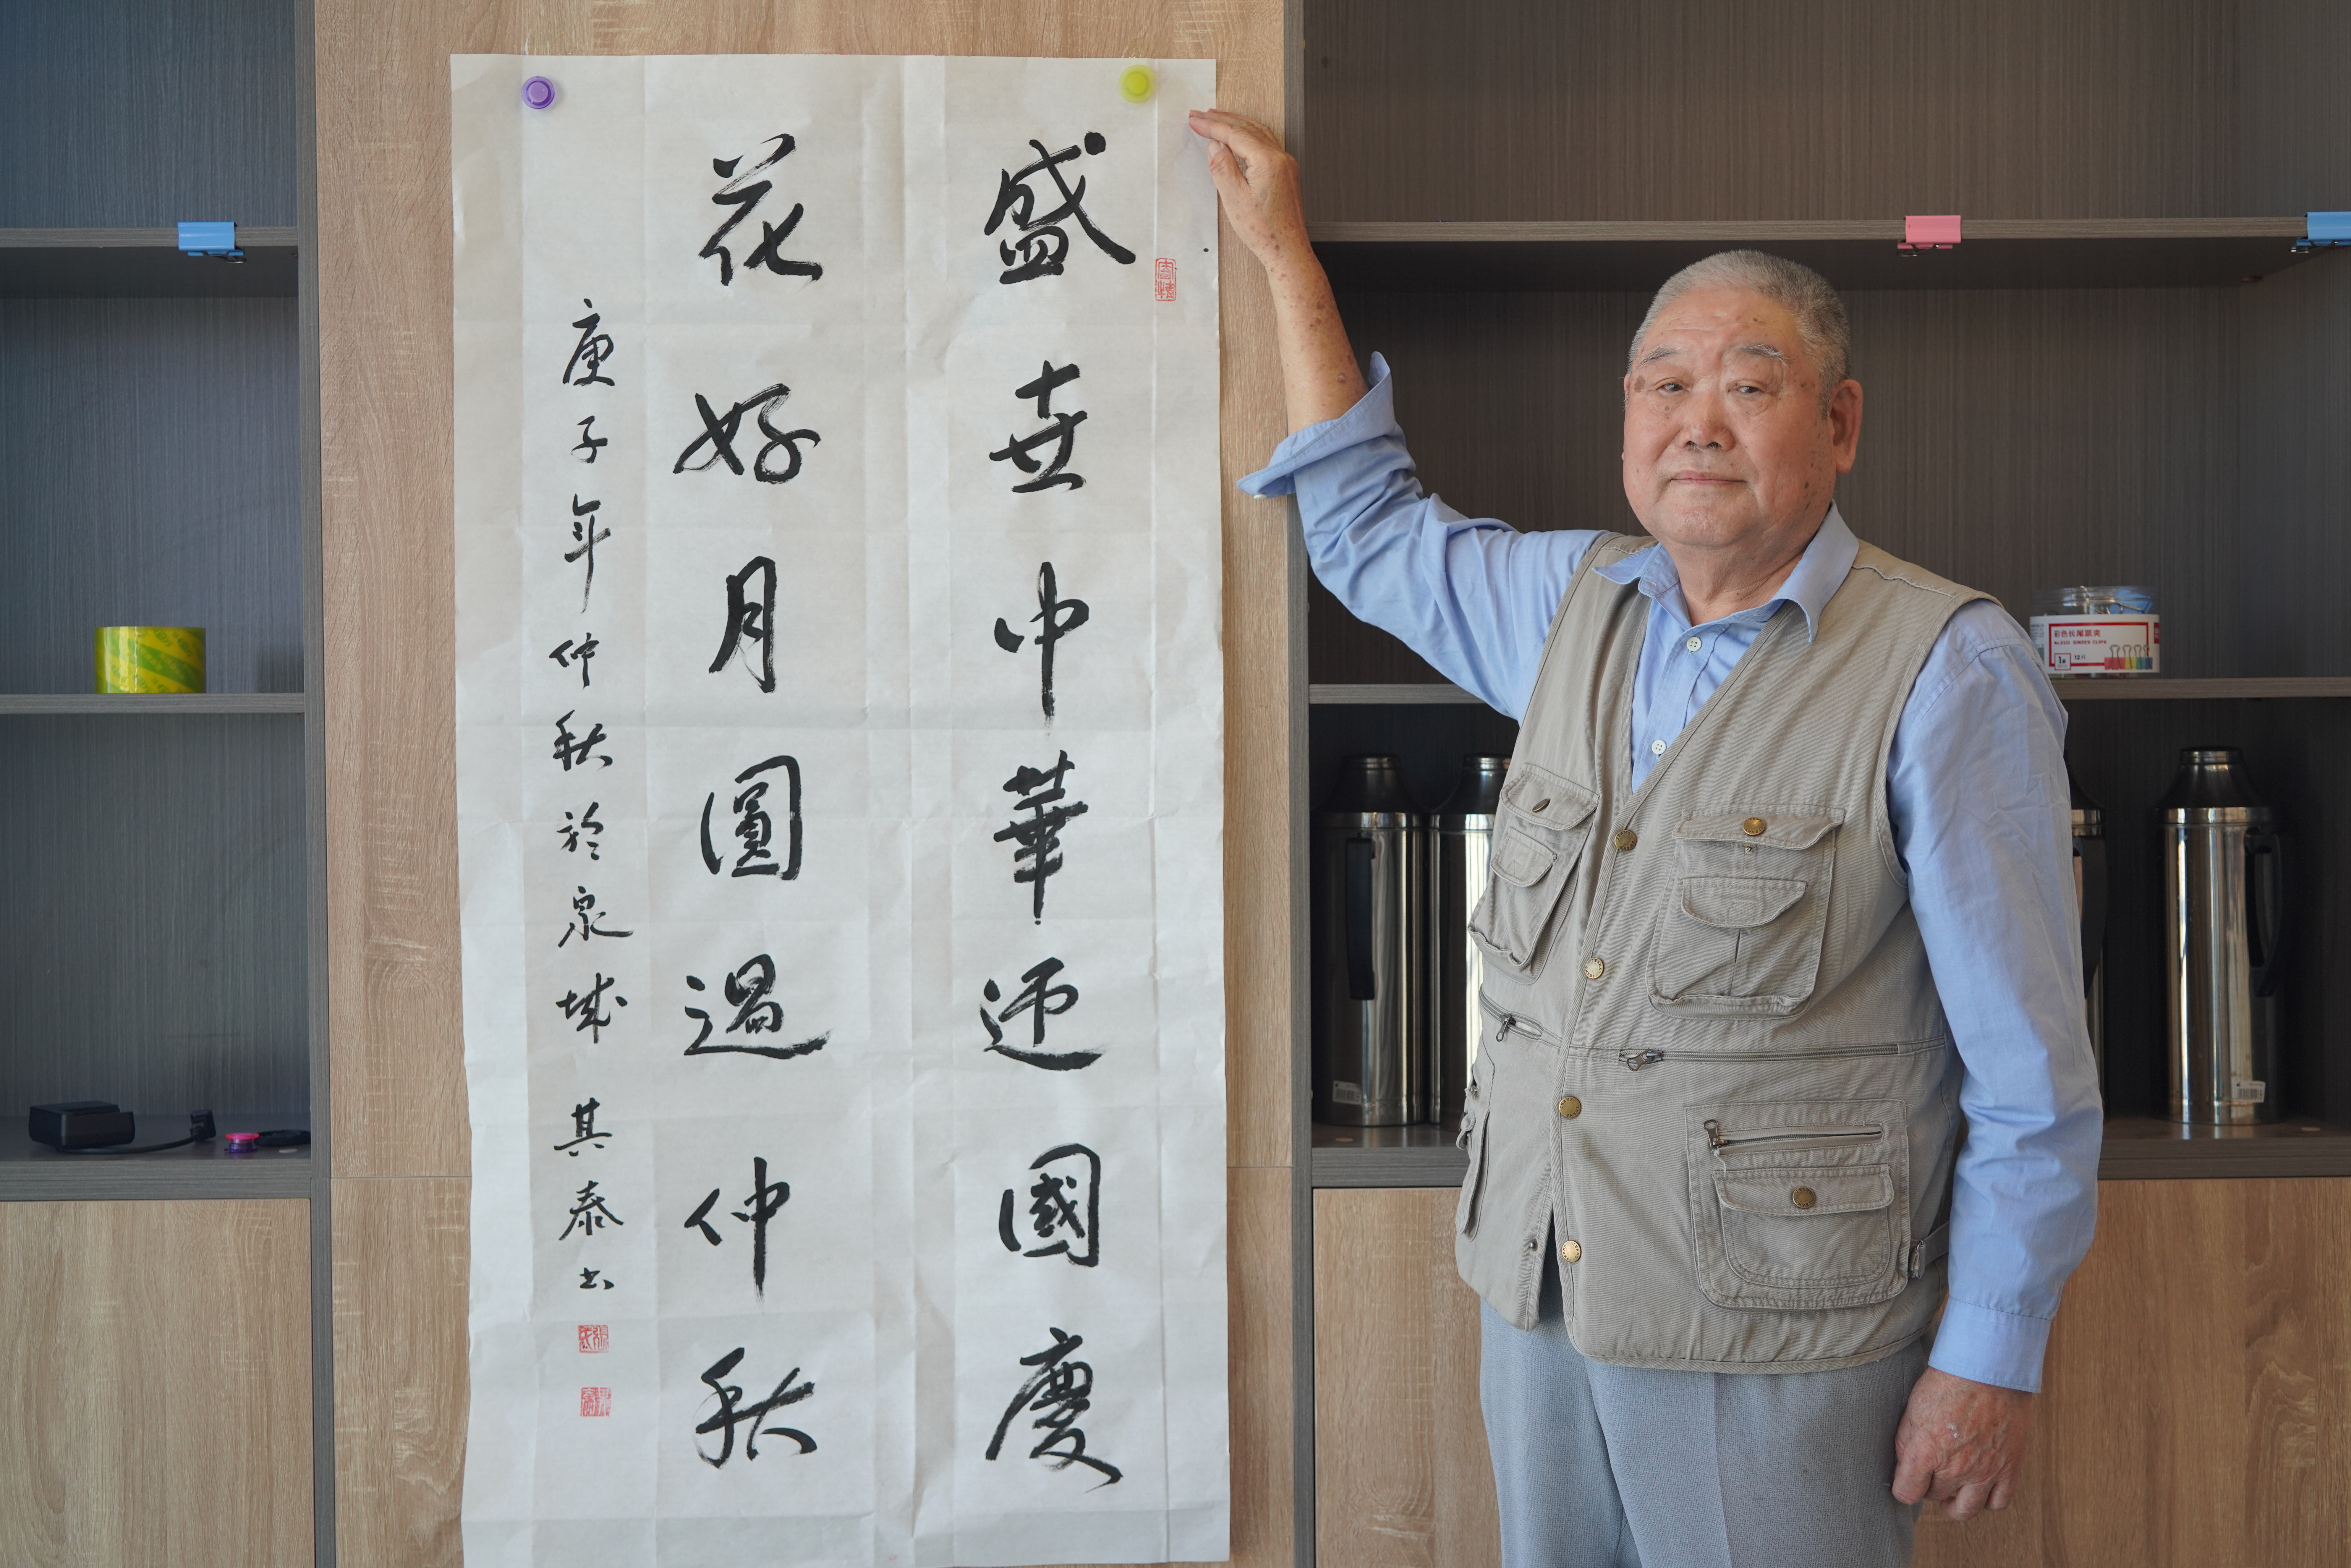 盛世中華迎國慶
花好月圓過仲秋
庚子年仲秋於泉城 其泰书
彩色长尾票夹
BINDER CLIPS